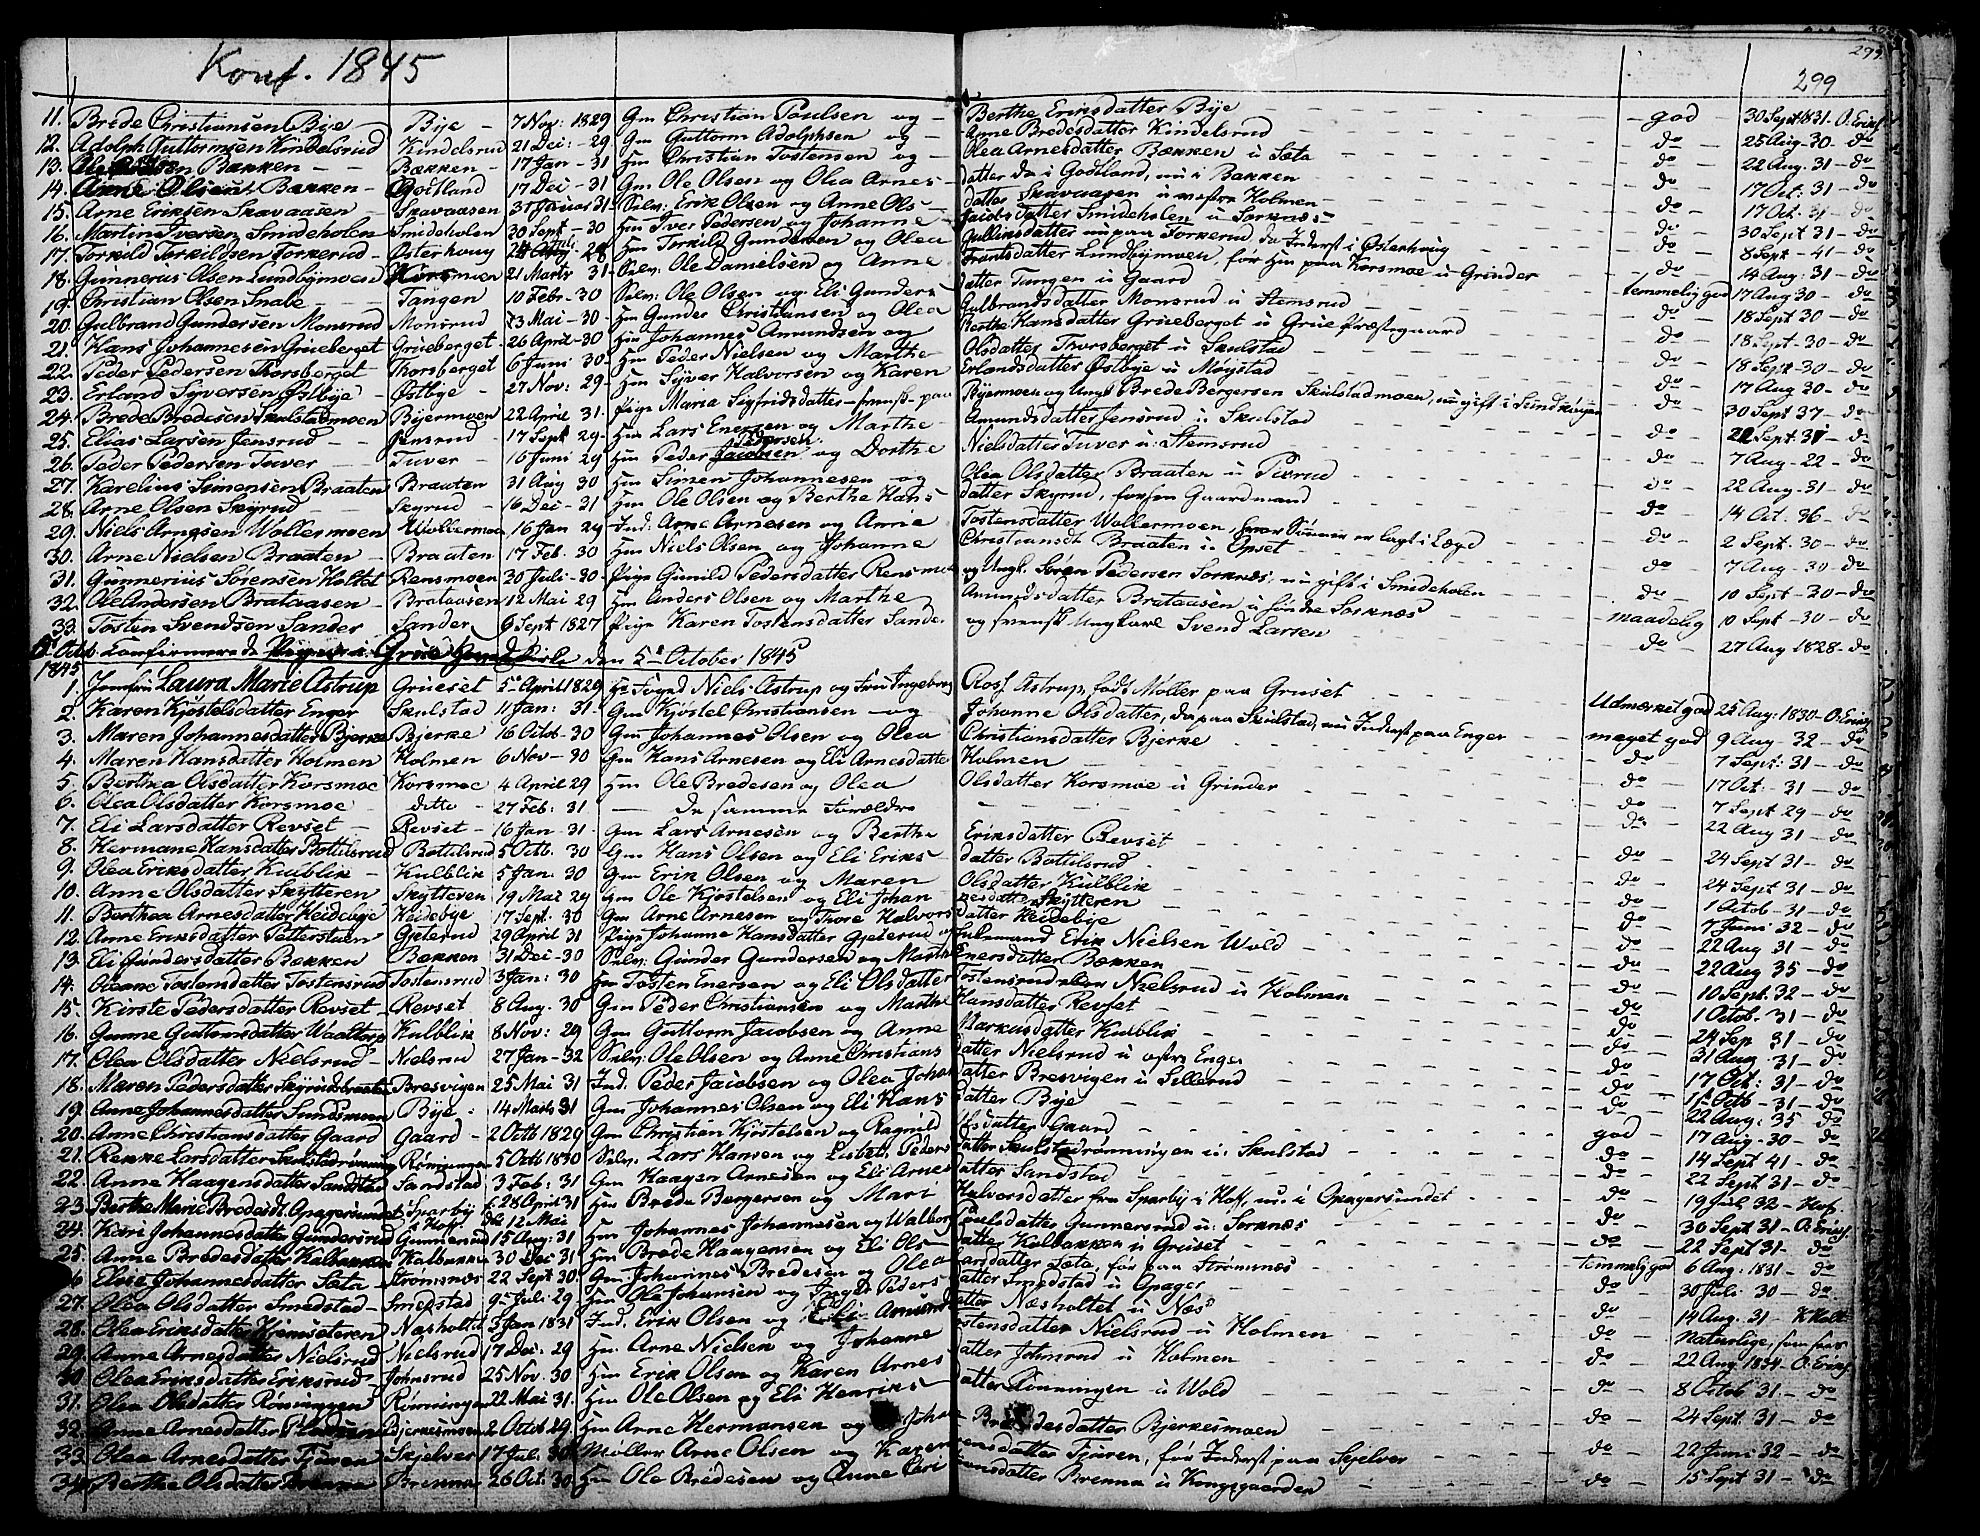 Konf. 1845
299
11. Brede Christiansen Bye - Bye - 7 Nov: 1829 Gm Christian Paulsen og - Berthe Eriksdatter Bye - god - 30 Sept 1831 - O. Erichs
12. Adolph Guttormsen Kindelsrud Kindelsrud 21 Dec: - 29 Gm Guttorm Adolphsen og - Anne Bredesdatter Kindelsrud - do - 25 Aug - 30 - do
13. Ole Bækken - Bækken - 17 Jan - 31 Hm Christian Tostensen og - Olea Arnesdatter Bækken u Sæta - do - 22 Aug. 31 - do
14. Arne Olsen Bækken - Godtland 17 Dec - 31 Gm Ole Olsen og Olea Arnes - datter da i Godtland, nu i Bækken - do - 17 Oct. 31 - do
15. Arne Eriksen Skavaasen - Skavaasen 31 Januar 31 - Selv: Erik Olsen og Anne Ols - datter Skavaasen u vestre Holmen - do - 17 Oct. 31 - do
16. Martin Iversen Smideholen - Smideholen 30 Sept - 30 Hm Iver Pedersen og Johanne Jacobsdatter Smideholen u Sorknæs - do - 30 Sept 31 - do
17. Torkild Torkildsen Torkerud - Østerhoug 28 Hm Torkild Gundersen og Olea Gullinsdatter nu paa Torkerud, da Inderst i Østerhoug - do - 8 Sept - 41 - do
18. Gunnerus Olsen Lundbymoen Korsmoen 21 Marts 31 - Selv: Ole Danielsen og Anne Frantsdatter Lundbymoen, før Hm paa Korsmoe u Grinder - do - 14 Aug: 31 - do
19. Christian Olsen Snale - Tangen - 10 Febr - 30 Selv: Ole Olsen og Eli Gunders - datter Tangen u Gaard - temmelig god 17 Aug 30 - do
20. Gulbrand Gundersen Monsrud Monsrud 23 Mai - 30 - Hm Gunder Christiansen og Olea Gulbrandsdatter Monsrud u Stemsrud - do - 18 Sept 30 - do
21. Hans Johannesen Grueberget Grueberget - 26 April - 30 Hm Johannes Amundsen og Berthe Hansdatter Grueberget u Grue Præstegaard - do - 18 Sept. 30 - do
22. Peder Pedersen Thorsberget Thorsberget 6 Juni 30 - Hm Peder Nielsen og Marthe Olsdatter Thorsberget u Skulstad - do - 18 Sept - 30 - do
23. Erland Syversen Østbye - Østbye - 27 Nov: 29 - Hm Syver Halvorsen og Karen Erlandsdatter Østbye u Møystad - do - 17 Aug 30 - do
24. Brede Bredesen Skulstadmoen Byermoen 22 April 31. Pige Maria Sigfridsdatter - fransk - paa Byermoen og Ungk Brede Bergersen Skulstadmoen, nu gift i - do - 30 Sept 37 - do
25. Elias Larsen Jensrud - Jensrud - 17 Sept 29 - Hm Lars Enersen og Marthe - Amundsdatter Jensrud u Skulstad - do - 22 Sept 31 - do
26. Peder Pedersen Tuver - Tuver - 16 Juni 29 Hm Peder Jacobsen Pedersen og Dorthe Nielsdatter Tuver u: Stemsrud - do - 7 Aug - 22 - do
27. Karelius Simensen Braaten Braaten 31 Aug 30 Hm Simen Johannesen og Olea Olsdatter Braaten u Pūrud - do - 22 Aug - 31 - do
28. Arne Olsen Skyrud - Skyrud - 16 Dec - 31 Hm Ole Olsen og Berthe Hans - datter Skyrud, forhen Gaardmand - do - 14 Oct. 36 - do
29. Niels Arnesen Wollermoen Wollermoe 16 Jan 29 - Ind: Arne Arnesen og Anne Tostensdatter Wollermoen, hvor Sønnen er lagt i Lægd - do - 2 Sept. 30 - do
30. Arne Nielsen Braaten - Braaten 17 Feb. 30 Hm Niels Olsen og Johanne Christiansdt Braaten u Opset - do - 7 Aug - 30 - do
31. Gunnerius Sørensen Holtet Rensmoen 20 Juli - 30 Pige Gunild Pedersdatter Rensmoe og Ungk. Søren Pedersen Sorknæs, nu gift i Smideholen - do - 10 Sept - 30 - do
32. Ole Andersen Brataasen - Brataasen 12 Mai 29 Hm Anders Olsen og Marthe Amundsdatter Brataasen u søndre Sorknæs - maadelig 10 Sept - 30 - do
33. Tosten Svendsen Sander Sander 9 Sept 1827 Pige Karen Tostensdatter Sander og fransk Ungkarl Svend Larsen - do - 27 Aug 1828 - do
5 Octb Confirmerede Piger i Grue Kirke den 5te October 1845
1845
1. Jomfru Laura Marie Astrup Grueset 5 - April 1829 Hr. Foged Niels Astrup og Frue Ingeborg Rosf. Astrup, født Møller paa Grueset - Udmerket god 25 Aug: 1830 - O. Erichs
2. Karen Kjøstelsdatter Enger Skulstad 11 Jan: 31. Gm Kjøstel Christiansen - og Johanne Olsdatter, da paa Skulstad, nu Inderst paa Enger - meget god - 9 Aug - 32 - do
3. Maren Johannesdatter Bjerke Bjerke 16 Octob - 30 Gm Johannes Olsen og Olea Christiansdatter Bjerke - do - 7 Sept. 31 - do
4. Maren Hansdatter Holmen Holmen 6 Nov - 30 Gm Hans Arnesen og Eli Arnesdatter Holmen - do - 17 Oct: - 31 - do
5. Berthea Olsdatter Korsmoe Korsmoe 4 April 29 Hm Ole Bredesen og Olea Olsdatter Korsmoe u Grinder - do - 7 Sept. 29 - do
6. Olea Olsdatter Korsmoe - ditto - 27 Feb: 31 - De samme Forældre - do - 22 Aug 31 - do
7. Eli Larsdatter Revset - Revset - 16 Jan 31. Gm Lars Arnesen og Berthe Eriksdatter Revset - do - 24 Sept 31 - do
8. Hermane Hansdatter Bottilsrud Bottilsrud 5 Octb. 30 Gm Hans Olsen og Eli Eriks - datter Bottilsrud - do - 24 Sept 31 - do
9. Olea Eriksdatter Kulblik - Kulblik 5 Jan: 30 Gm Erik Olsen og Maren Olsdatter Kulblik - do - 1 Octob - 31 - do
10. Anne Olsdatter Skytteren Skytteren 19 Mai 29 Gm Ole Kjøstelsen og Eli Johan nesdatter Skytteren - do - 7 Juni 32 - do
11. Berthea Arnesdatter Heidebye Heidebye 17 Sept. 30 Gm Arne Arnesen og Thore Halvors datter Heidebye - do - 22 Aug 31 - do
12. Anne Eriksdatter Petterstuen Gjeterud 29 April 31 Pige Johanne Hansdatter Gjeterud og Enkemand Erik Nielsen Wold - do - 22 Aug 35 - do
13. Eli Gundersdatter Bækken Bækken 31 Dec - 30 Selv: Gunder Gundersen og Marthe Enersdatter Bækken - do - 10 Sept. 32 - do
14. Oleane Tostensdatter Tostensrud Tostensrud 3 Jan: 30 Hm Tosten Enersen og Eli Olsdatter Tostensrud Nielsrud u Holmen - do - 1 Octob. 31 - do
15. Kirste Pedersdatter Revset - Revset 8 Aug. 30 Gm Peder Christiansen og Marthe Hansdatter Revset - do - 24 Sep 31 - do
16. Gunne Guttormsdatter Kulblik 8 Nov: 29 Gm Guttorm Jacobsen og Anne Markusdatter Kulblik - do - 31 Aug 31 - do
17. Olea Olsdatter Nielsrud Nielsrud 27 Jan - 32 Selv: Ole Olsen og Anne Christians datter Nielsrud u østre Enger - do - 17 Oct: 31 - do
18. Maren Pedersdatter Skyrudsbraaten Bresvigen 25 Mai 31 Ind. Peder Jacobsen og Olea Johan datter Bresvigen u Sillerud - do - 1 Octb - 31 - do
19. Anne Johannesdatter Sundsmoen Bye - 14 Marts 31 Gm Johannes Olsen og Eli Hans datter Bye - do - 22 Aug: 35 - do
20. Anne Christiansdatter Gaard Gaard - 2 Octb 1829 Gm Christian Kjøstelsen og Ragnild datter Gaard - god - 17 Aug - 30 - do
21. Rekke Larsdatter Skulstadrønning Rønningen 5 Octb 1830 Selv. Lars Hansen og Lisbet Peders datter Skulstadrønningen u: Skulstad - do - 14 Sept 41 - do
22. Anne Haagensdatter Sandstad Sandstad 3 Feb: 31 Gm Haagen Arnesen og Eli Arnes datter Sandstad - do - 22 Sept 31 - do
23. Berthe Marie Bredesdt. Opagersundet Sparby i Hoff f. 28 April 31 db 12 Mai Hm Brede Bergersen og Mari Halvorsdatter fra Sparby i Hoff, nu i Opagersundet - do - 19 Jul. 32 - Hof.
24. Kari Johannesdatter Gundersrud Gunnersrud 15 Aug: 31 Hm Johannes Johannesen og Walborg Poulsdatter Gunnersrud u: Sorknæs - do - 30 Sept 31 - O. Erichs.
25. Anne Bredesdatter Kalbakken Kalbakken 30 Dec 31 Hm Brede Haagensen og Eli Ols - datter Kalbakken u Grueset - do - 22 Sept 31 - do
26. Elise Johannesdatter Sæta Strømsnæs 22 Sept 30. Gm. Johannes Bredesen og Olea Larsdatter Sæta, før paa Strømsnæs - temmelig god 6 Aug: 1831 - do
27. Olea Olsdatter Smedstad - Smedstad 9 Juli: 29 Hm Ole Johansen og Inger Peders datter Smedstad u Opager - do - 30 Juli 30 - do
28. Olea Eriksdatter Næsholtet 3 Jan 1831 Ind. Erik Olsen og Eli Amunds datter Næsholtet u Næs - do - 14 Aug. 31 - K. Holt
29. Anne Arnesdatter Nielsrud Nielsrud 17 Dec: 29 Hm. Arne Nielsen og Johanne Tostensdatter Nielsrud u Holmen - do - Naturlige,
30. Olea Eriksdatter Eriksrud Johnsrud 25 Nov. 30 Hm Erik Olsen og Karen Arnes datter Johnsrud u Holmen - do - 22 Aug 1834 - O. Erichs.
31. Olea Olsdatter Rønningen Rønningen 22 Mai 31 Hm Ole Olsen og Eli Henriks datter Rønningen u Wold - do - 8 Octob 31 - do
32. Anne Arnesdatter Bjerkesmoen 2 Octb 29 Hm Arne Hermansen og Johan Bredesdatter Bjerkesmoen - do - 24 Sept. 31 - do
33. Olea Arnesdatter Furen Skjelver 17 Jul. 30 Møller Arne Olsen og Karen datter Furen, før Inderst paa Skjelver - do - 22 Juni 32 - do
34. Berthe Olsdatter Brenna Brenna 26 Oct. 30 Hm Ole Bredesen og Anne Chri stiansdatter Brenna u Kongsgaarden - do - 15 Sept 31 - do